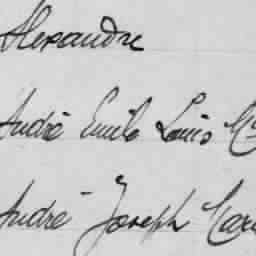 Alexandre
André Emile Louis
André Joseph